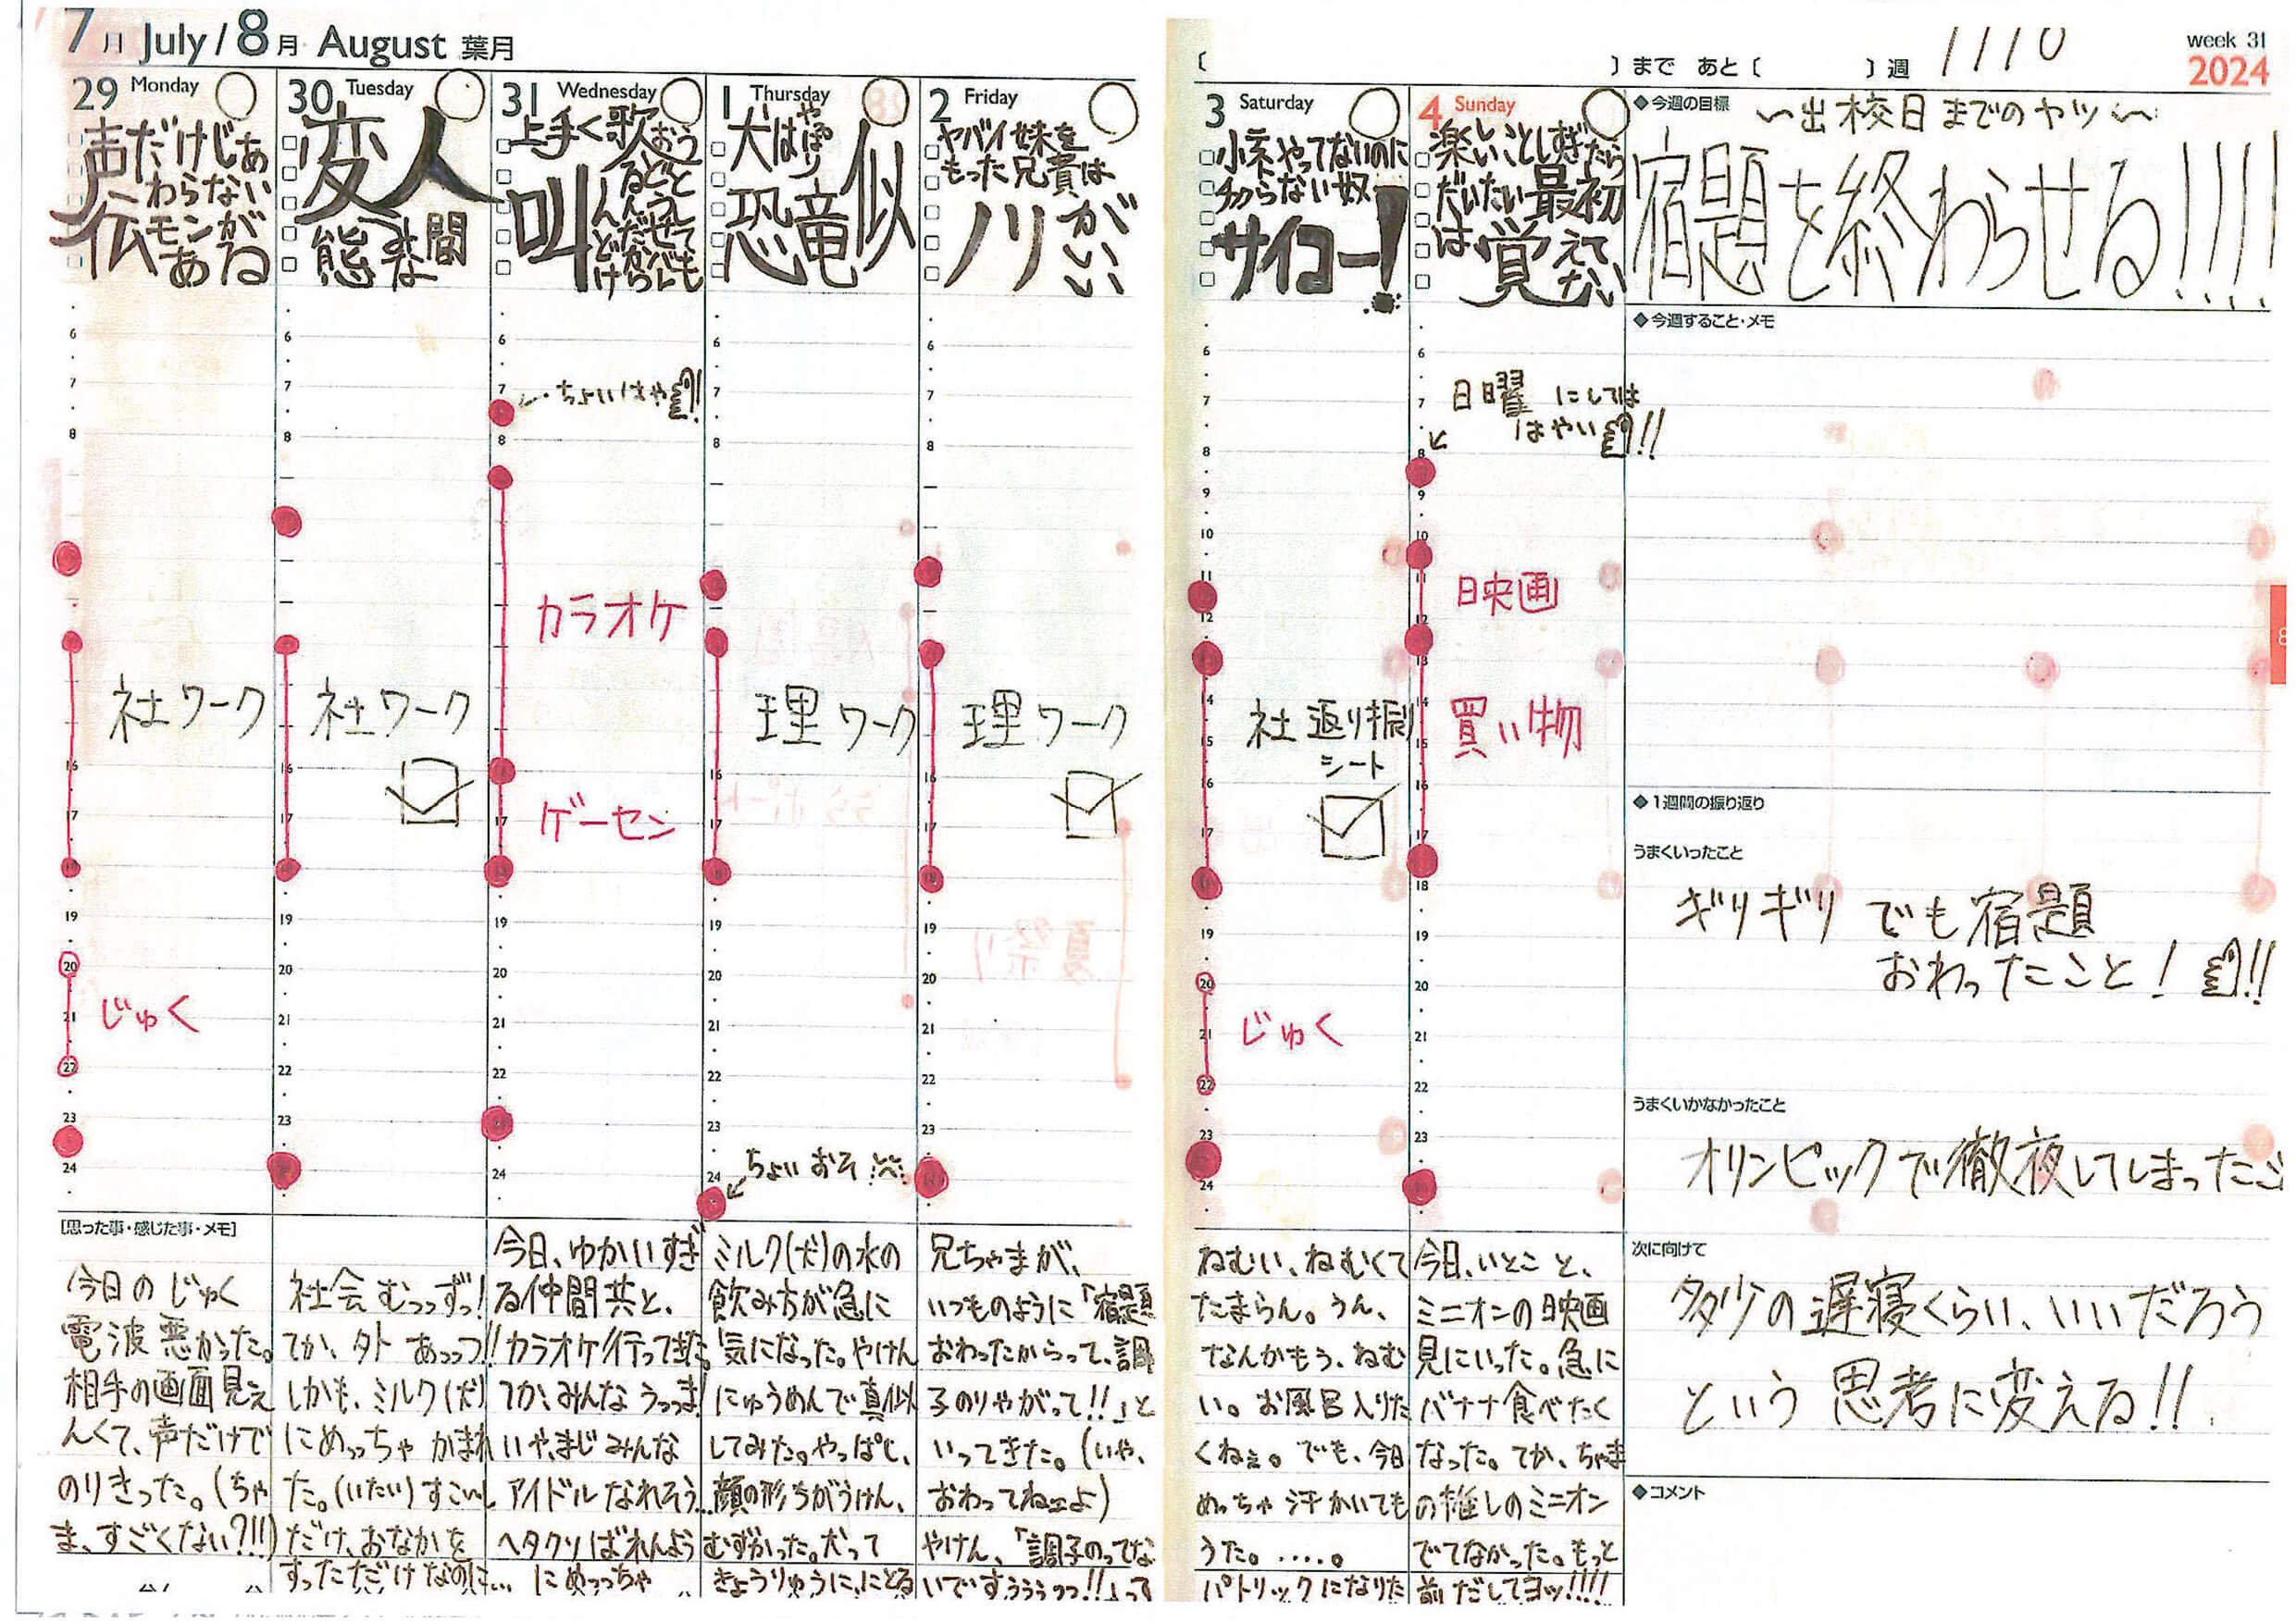 7月 July / 8月 August 葉月
29 Monday
声だけじゃ
わらない
伝モンが
ある
30 Tuesday
変人
態 間
31 Wednesday
上手く歌おう
叫
1 Thursday
犬はやっぱり
恐竜似
2 Friday
ヤバイ妹を
もった兄貴は
ノリがいい
〔 〕まで あと〔 〕週
week 31
2024
3 Saturday
小ネやってないのに
チクらない奴
サイコー!
4 Sunday
楽しいことしすぎたら
だいたい最初
は覚えてない
◆今週の目標
〜出校日までのヤツ〜
宿題を終わらせる!!!!
◆今週すること・メモ
ちょいはや!!
日曜 にしては
はやい!!
カラオケ
映画
社ワーク
社ワーク
理ワーク
理ワーク
社 返り振り
シート
買い物
ゲーセン
じゅく
じゅく
ちょいおそ
◆1週間の振り返り
うまくいったこと
ギリギリ でも宿題
おわったこと! !!
うまくいかなかったこと
オリンピックで徹夜してしまったこ
次に向けて
多少の遅寝くらい、いいだろう
という 思考に変える!!
◆コメント
[思った事・感じた事・メモ]
今日のじゅく
電波悪かった。
相手の画面見え
んくて、声だけで
のりきった。(ちゃ
ま、すごくない?!!!)
社会むっっずっ!
てか、外 あっっつ!!
しかも、ミルク(犬)
にめっちゃ かまれ
た。(いたい)すこーし
だけ、おなかを
すっただけなのに…
今日、ゆかいすぎ
る仲間共と、
カラオケ行ってきた。
てか、みんなうっっま!
いや、まじみんな
アイドルなれそう…
ヘタクソばれんよう
にめっっちゃ
ミルク(犬)の水の
飲み方が急に
気になった。やけん
にゅうめんで真似
してみた。やっぱし、
顔の形ちがうけん、
むずかった。犬って
きょうりゅうに、にとる
兄ちゃまが、
いつものように「宿題
おわったからって、調
子のりやがって!!」と
いってきた。(いや、
おわってねェよ)
やけん、「調子のってな
いですぅぅぅっっ!!」って
ねむい、ねむくて
たまらん。うん、
なんかもう、ねむ
い。お風呂入りた
くねぇ。でも、今日
めっちゃ汗かいても
うた。.....。
パトリックになりた
今日、いとこと、
ミニオンの映画
見にいった。急に
バナナ食べたく
なった。てか、ちゃま
の推しのミニオン
でてなかった。もっと
前だしてヨッ!!!!